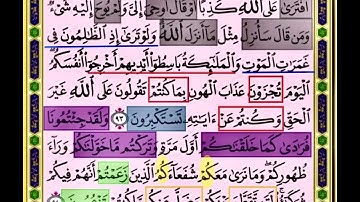 ٱفْتَرَىٰ عَلَى ٱللَّهِ كَذِبًا أَوْ قَالَ أُوحِىَ إِلَىَّ وَلَمْ يُوحَ إِلَيْهِ شَىْءٌ
وَمَن قَالَ سَأُنزِلُ مِثْلَ مَآ أَنزَلَ ٱللَّهُ وَلَوْ تَرَىٰٓ إِذِ ٱلظَّٰلِمُونَ فِى
غَمَرَٰتِ ٱلْمَوْتِ وَٱلْمَلَٰٓئِكَةُ بَاسِطُوٓا۟ أَيْدِيهِمْ أَخْرِجُوٓا۟ أَنفُسَكُمُ
ٱلْيَوْمَ تُجْزَوْنَ عَذَابَ ٱلْهُونِ بِمَا كُنتُمْ تَقُولُونَ عَلَى ٱللَّهِ غَيْرَ
ٱلْحَقِّ وَكُنتُمْ عَنْ ءَايَٰتِهِۦ تَسْتَكْبِرُونَ ٩٣ وَلَقَدْ جِئْتُمُونَا
فُرَٰدَىٰ كَمَا خَلَقْنَٰكُمْ أَوَّلَ مَرَّةٍ وَتَرَكْتُم مَّا خَوَّلْنَٰكُمْ وَرَآءَ
ظُهُورِكُمْ وَمَا نَرَىٰ مَعَكُمْ شُفَعَآءَكُمُ ٱلَّذِينَ زَعَمْتُمْ أَنَّهُمْ فِيكُمْ